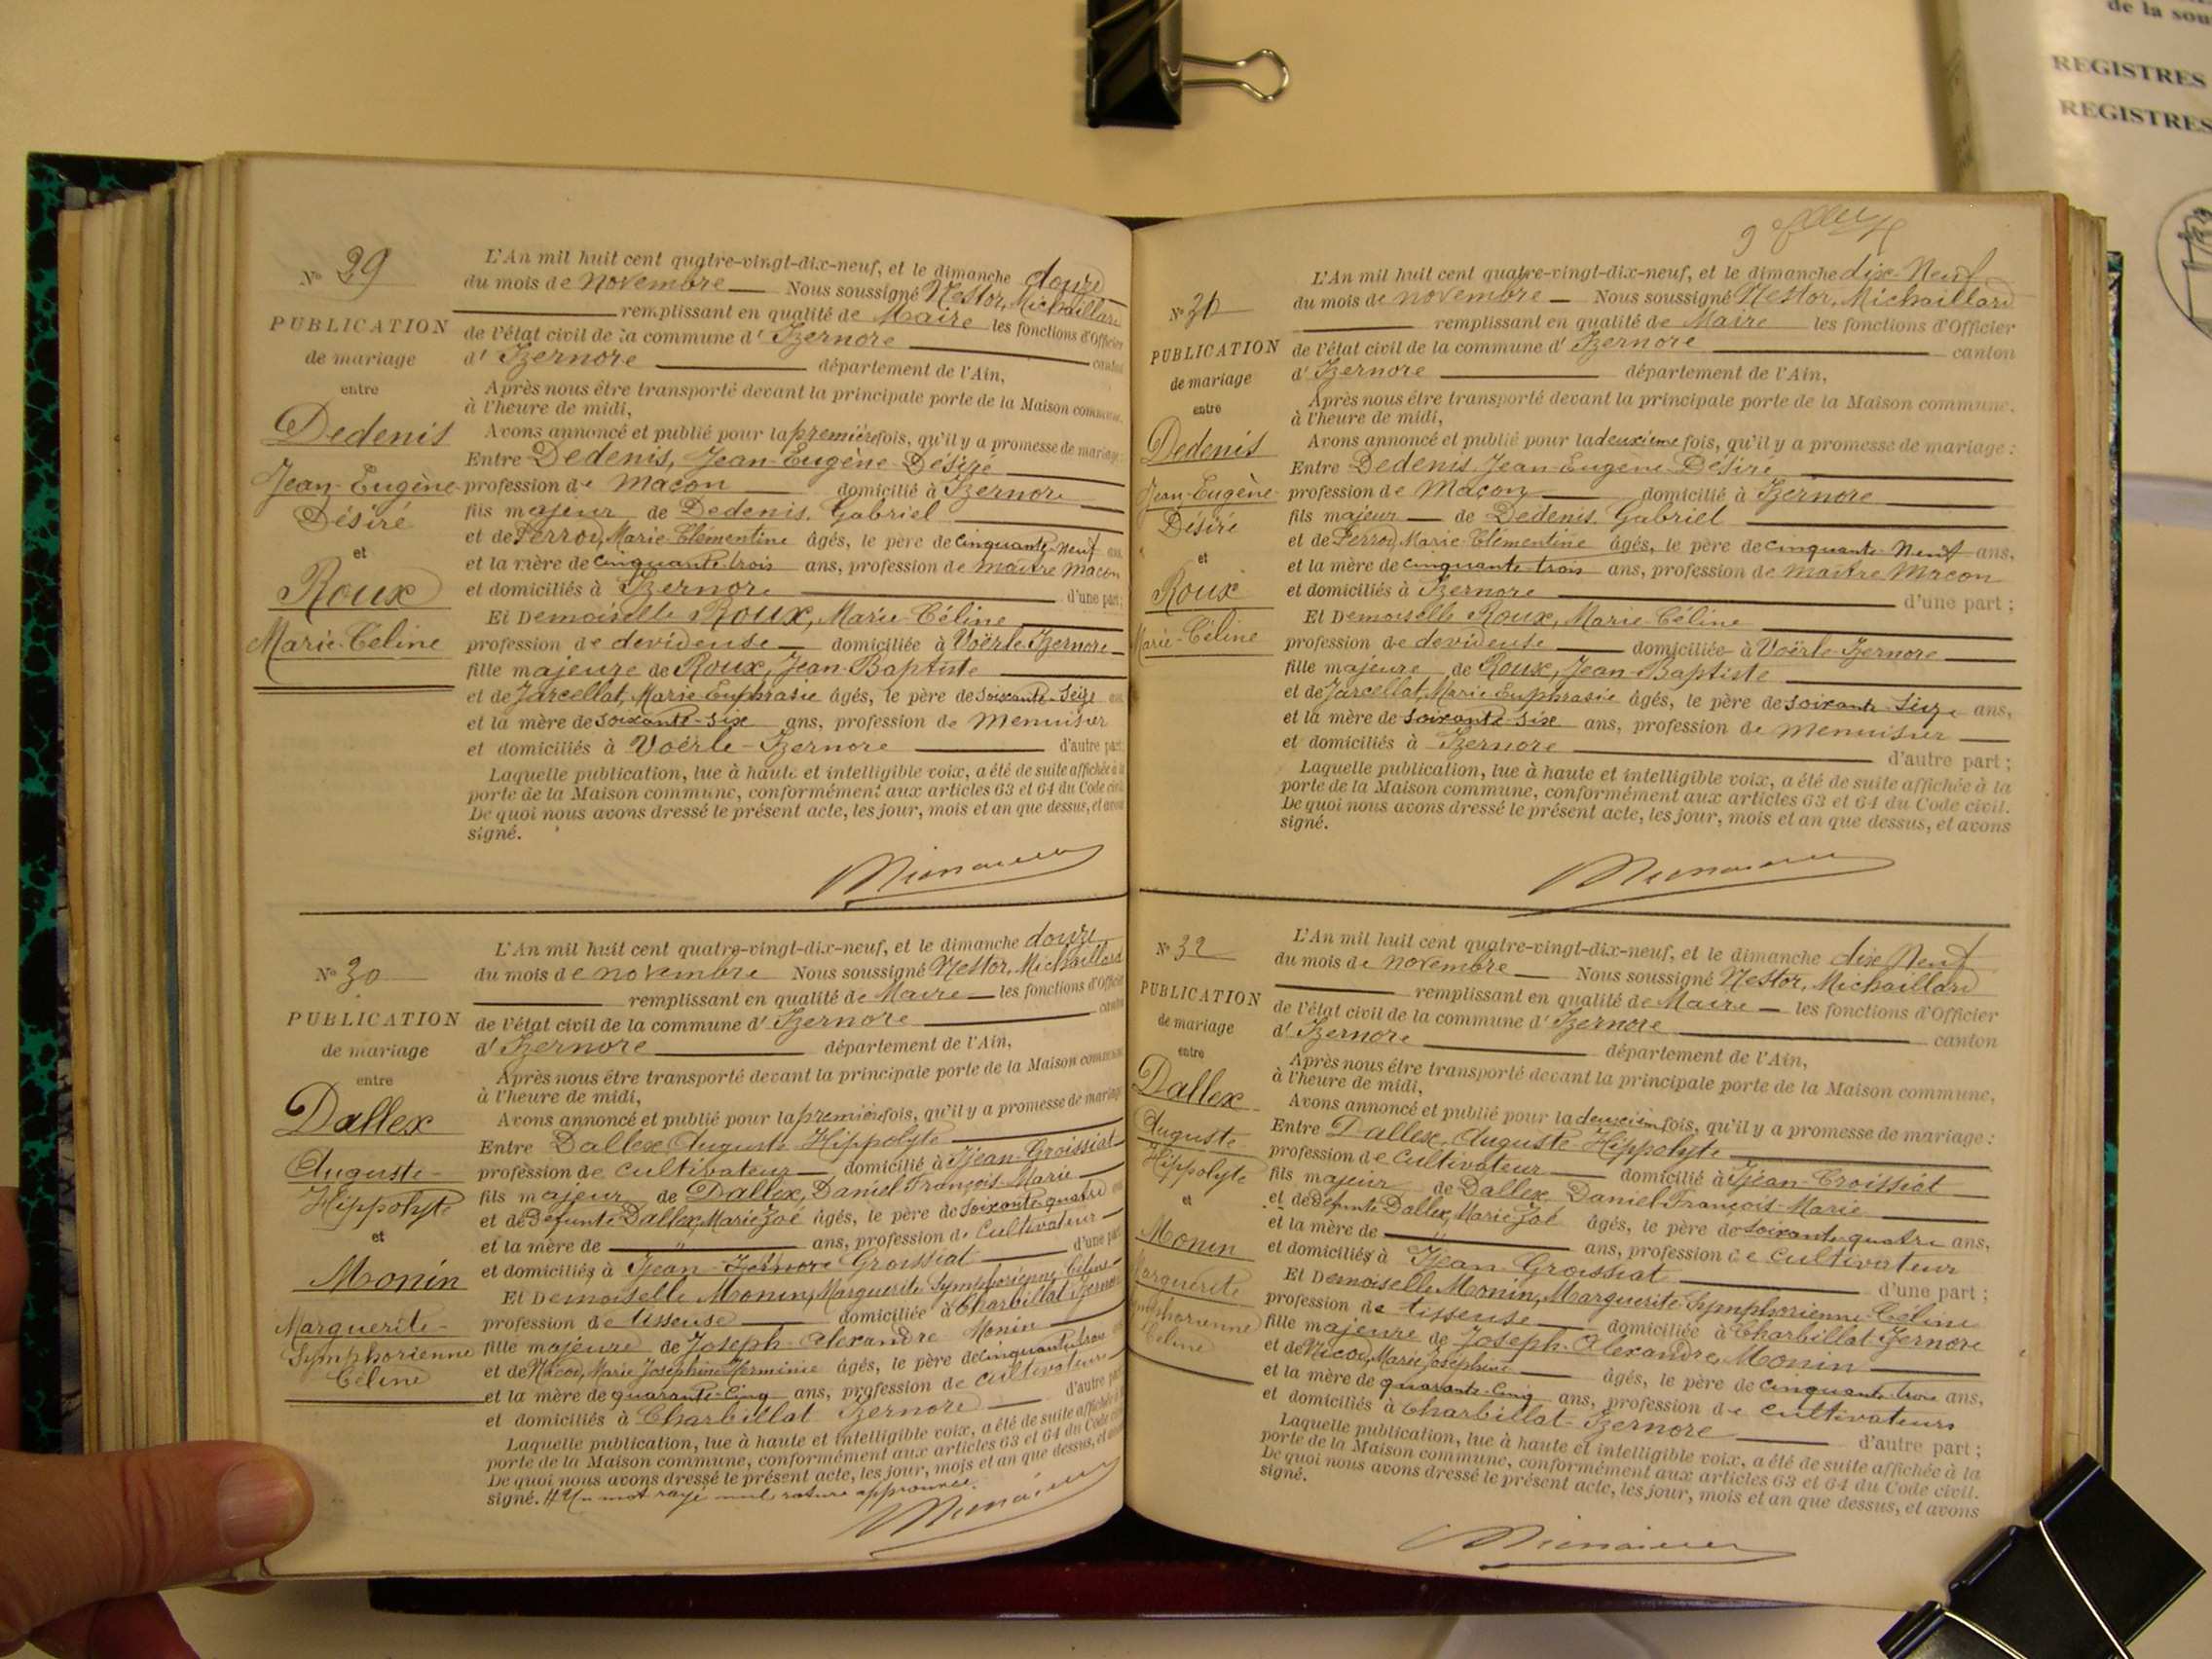 de la sou
REGISTRES
REGISTRES
N° 29
PUBLICATION
de mariage
entre
Dedenis
Jean-Eugène
Désiré
et
Roux
Marie-Céline
L'An mil huit cent quatre-vingt-dix-neuf, et le dimanche douze
du mois de Novembre Nous soussigné Nestor, Michaillard
remplissant en qualité de Maire les fonctions d'Officier
de l'état civil de la commune d' Izernore canton
d' Izernore département de l'Ain,
Après nous être transporté devant la principale porte de la Maison commune,
à l'heure de midi,
Avons annoncé et publié pour la première fois, qu'il y a promesse de mariage
Entre Dedenis, Jean-Eugène-Désiré
profession de Maçon domicilié à Izernore
fils majeur de Dedenis, Gabriel
et de Perrod, Marie-Clémentine âgés, le père de cinquante-neuf ans
et la mère de cinquante-trois ans, profession de maitre maçon
et domiciliés à Izernore d'une part;
Et Demoiselle Roux, Marie-Céline
profession de devideuse domiciliée à Voërle-Izernore
fille majeure de Roux, Jean-Baptiste
et de Jarcellat, Marie-Euphrasie âgés, le père de soixante-seize ans
et la mère de soixante-six ans, profession de Menuisier
et domiciliés à Voërle-Izernore d'autre part
Laquelle publication, lue à haute et intelligible voix, a été de suite affichée à la
porte de la Maison commune, conformément aux articles 63 et 64 du Code civil.
De quoi nous avons dressé le présent acte, les jour, mois et an que dessus, et avons
signé.
N° 30
PUBLICATION
de mariage
entre
Dallex
Auguste-
Hippolyte
et
Monin
Marguerite-
Symphorienne
Céline
L'An mil huit cent quatre-vingt-dix-neuf, et le dimanche douze
du mois de novembre Nous soussigné Nestor, Michaillard
remplissant en qualité de Maire les fonctions d'Officier
de l'état civil de la commune d' Izernore canton
d' Izernore département de l'Ain,
Après nous être transporté devant la principale porte de la Maison commune
à l'heure de midi,
Avons annoncé et publié pour la première fois, qu'il y a promesse de mariage
Entre Dallex Auguste-Hippolyte
profession de Cultivateur domicilié à Ijean-Groissiat
fils majeur de Dallex, Daniel-François-Marie
et de Défunte Dallex, Marie Zoé âgés, le père de soixante quatre ans
et la mère de " ans, profession de Cultivateur
et domiciliés à Ijean-Izernore Groissiat d'une part
Et Demoiselle Monin, Marguerite Symphorienne Céline
profession de tisseuse domiciliée à Charbillat Izernore
fille majeure de Joseph-Alexandre Monin
et de Nicod, Marie Joséphine Herminie âgés, le père de cinquante trois ans
et la mère de quarante-cinq ans, profession de cultivateurs
et domiciliés à Charbillat Izernore d'autre part
Laquelle publication, lue à haute et intelligible voix, a été de suite affichée à la
porte de la Maison commune, conformément aux articles 63 et 64 du Code civil
De quoi nous avons dressé le présent acte, les jour, mois et an que dessus, et avons
signé. Un mot rayé nul, rature approuvée.
N° 31
PUBLICATION
de mariage
entre
Dedenis
Jean-Eugène-
Désiré
et
Roux
Marie-Céline
L'An mil huit cent quatre-vingt-dix-neuf, et le dimanche dix-Neuf
du mois de novembre Nous soussigné Nestor, Michaillard
remplissant en qualité de Maire les fonctions d'Officier
de l'état civil de la commune d' Izernore canton
d' Izernore département de l'Ain,
Après nous être transporté devant la principale porte de la Maison commune,
à l'heure de midi,
Avons annoncé et publié pour la deuxième fois, qu'il y a promesse de mariage :
Entre Dedenis, Jean-Eugène-Désiré
profession de Maçon domicilié à Izernore
fils majeur de Dedenis, Gabriel
et de Perrod, Marie-Clémentine âgés, le père de cinquante-neuf ans,
et la mère de cinquante-trois ans, profession de maitre Maçon
et domiciliés à Izernore d'une part ;
Et Demoiselle Roux, Marie-Céline
profession de devideuse domiciliée à Voërle-Izernore
fille majeure de Roux, Jean-Baptiste
et de Jarcellat, Marie Euphrasie âgés, le père de soixante seize ans,
et la mère de soixante-six ans, profession de menuisier
et domiciliés à Izernore d'autre part ;
Laquelle publication, lue à haute et intelligible voix, a été de suite affichée à la
porte de la Maison commune, conformément aux articles 63 et 64 du Code civil.
De quoi nous avons dressé le présent acte, les jour, mois et an que dessus, et avons
signé.
N° 32
PUBLICATION
de mariage
entre
Dallex
Auguste
Hippolyte
et
Monin
Marguerite
Symphorienne
Céline
L'An mil huit cent quatre-vingt-dix-neuf, et le dimanche dix Neuf
du mois de novembre Nous soussigné Nestor, Michaillard
remplissant en qualité de Maire les fonctions d'Officier
de l'état civil de la commune d' Izernore canton
d' Izernore département de l'Ain,
Après nous être transporté devant la principale porte de la Maison commune,
à l'heure de midi,
Avons annoncé et publié pour la deuxième fois, qu'il y a promesse de mariage :
Entre Dallex, Auguste-Hippolyte
profession de Cultivateur domicilié à Ijean-Groissiat
fils majeur de Dallex, Daniel-François-Marie
et de défunte Dallex, Marie Zoé âgés, le père de soixante-quatre ans,
et la mère de ans, profession de cultivateur
et domiciliés à Ijean Groissiat d'une part ;
Et Demoiselle Monin, Marguerite Symphorienne-Céline
profession de tisseuse domiciliée à Charbillat Izernore
fille majeure de Joseph-Alexandre, Monin
et de Nicod, Marie Joséphine âgés, le père de cinquante trois ans,
et la mère de quarante-cinq ans, profession de cultivateurs
et domiciliés à Charbillat-Izernore d'autre part ;
Laquelle publication, lue à haute et intelligible voix, a été de suite affichée à la
porte de la Maison commune, conformément aux articles 63 et 64 du Code civil.
De quoi nous avons dressé le présent acte, les jour, mois et an que dessus, et avons
signé.